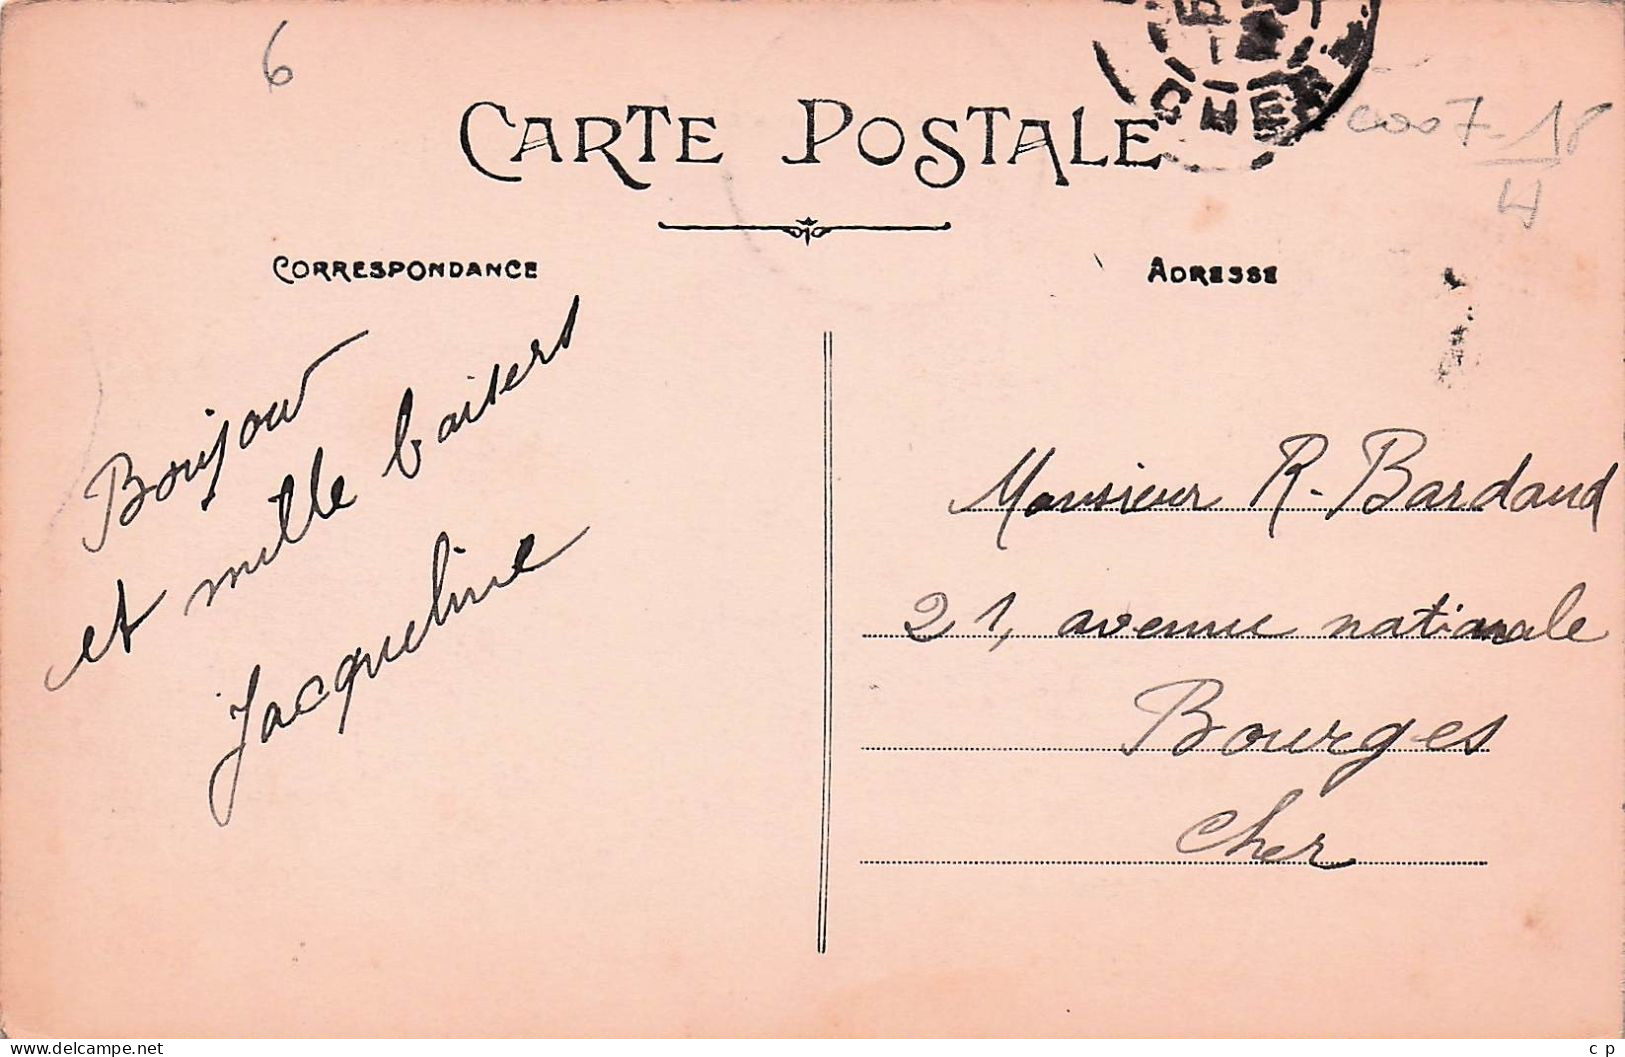 6
CARTE POSTALE
18
4
CORRESPONDANCE
ADRESSE
Bonjour
et mille baisers
Jacqueline
Monsieur R. Bardaud
21, avenue nationale
Bourges
Cher
www.delcampe.net
c p